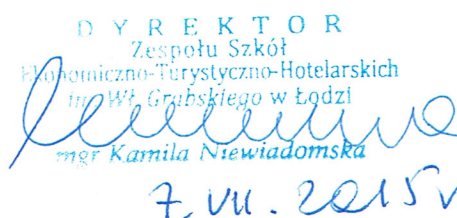 DYREKTOR
Zespołu Szkół
Ekonomiczno-Turystyczno-Hotelarskich
im. Wł. Grabskiego w Łodzi
mgr Kamila Niewiadomska
7.VII.2015r